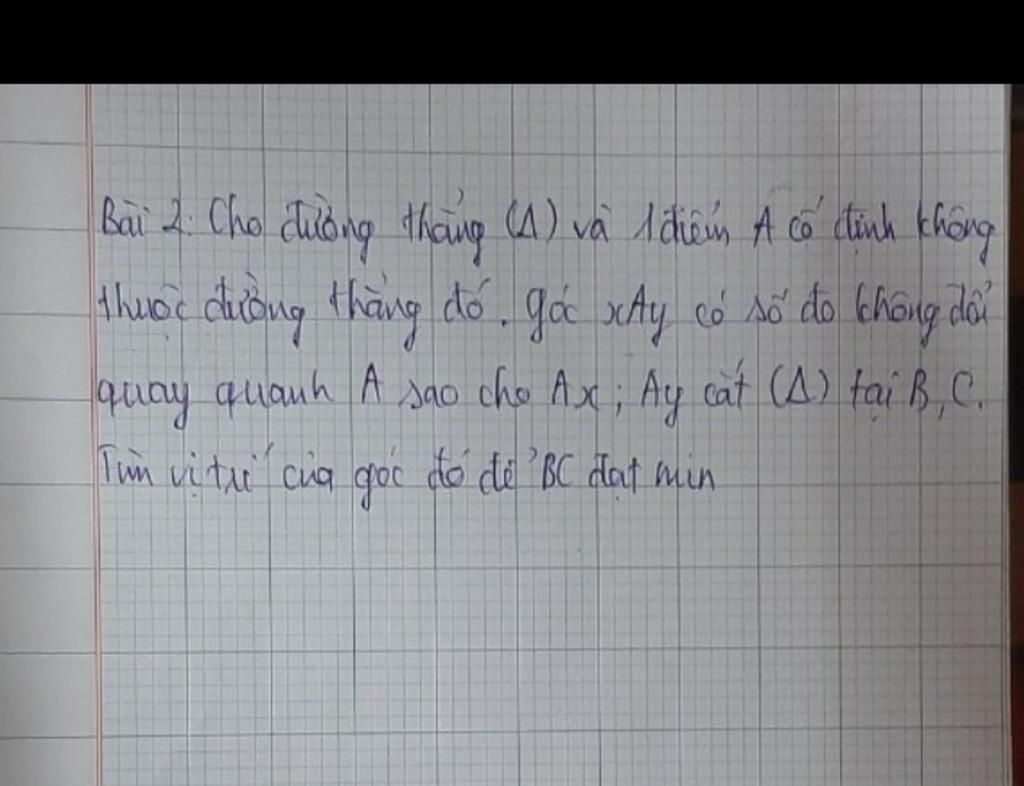 Bài 2: Cho đường thẳng (Δ) và 1 điểm A cố định không
thuộc đường thẳng đó. góc xAy có số đo không đổi
quay quanh A sao cho Ax; Ay cắt (Δ) tại B, C.
Tìm vị trí của góc đó để BC đạt min